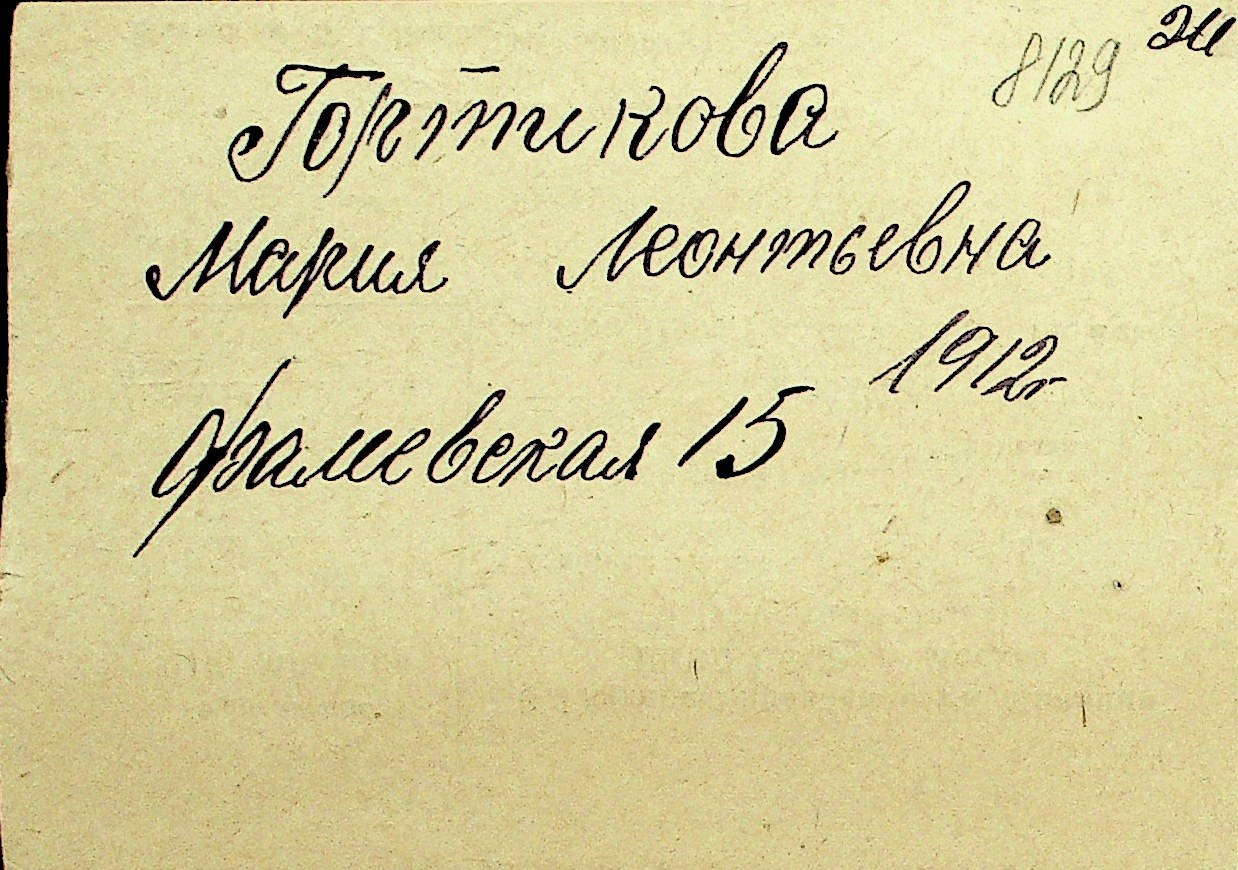 8129 эи
Гортикова
Мария Леонтьевна
1912г
Фалевская 15